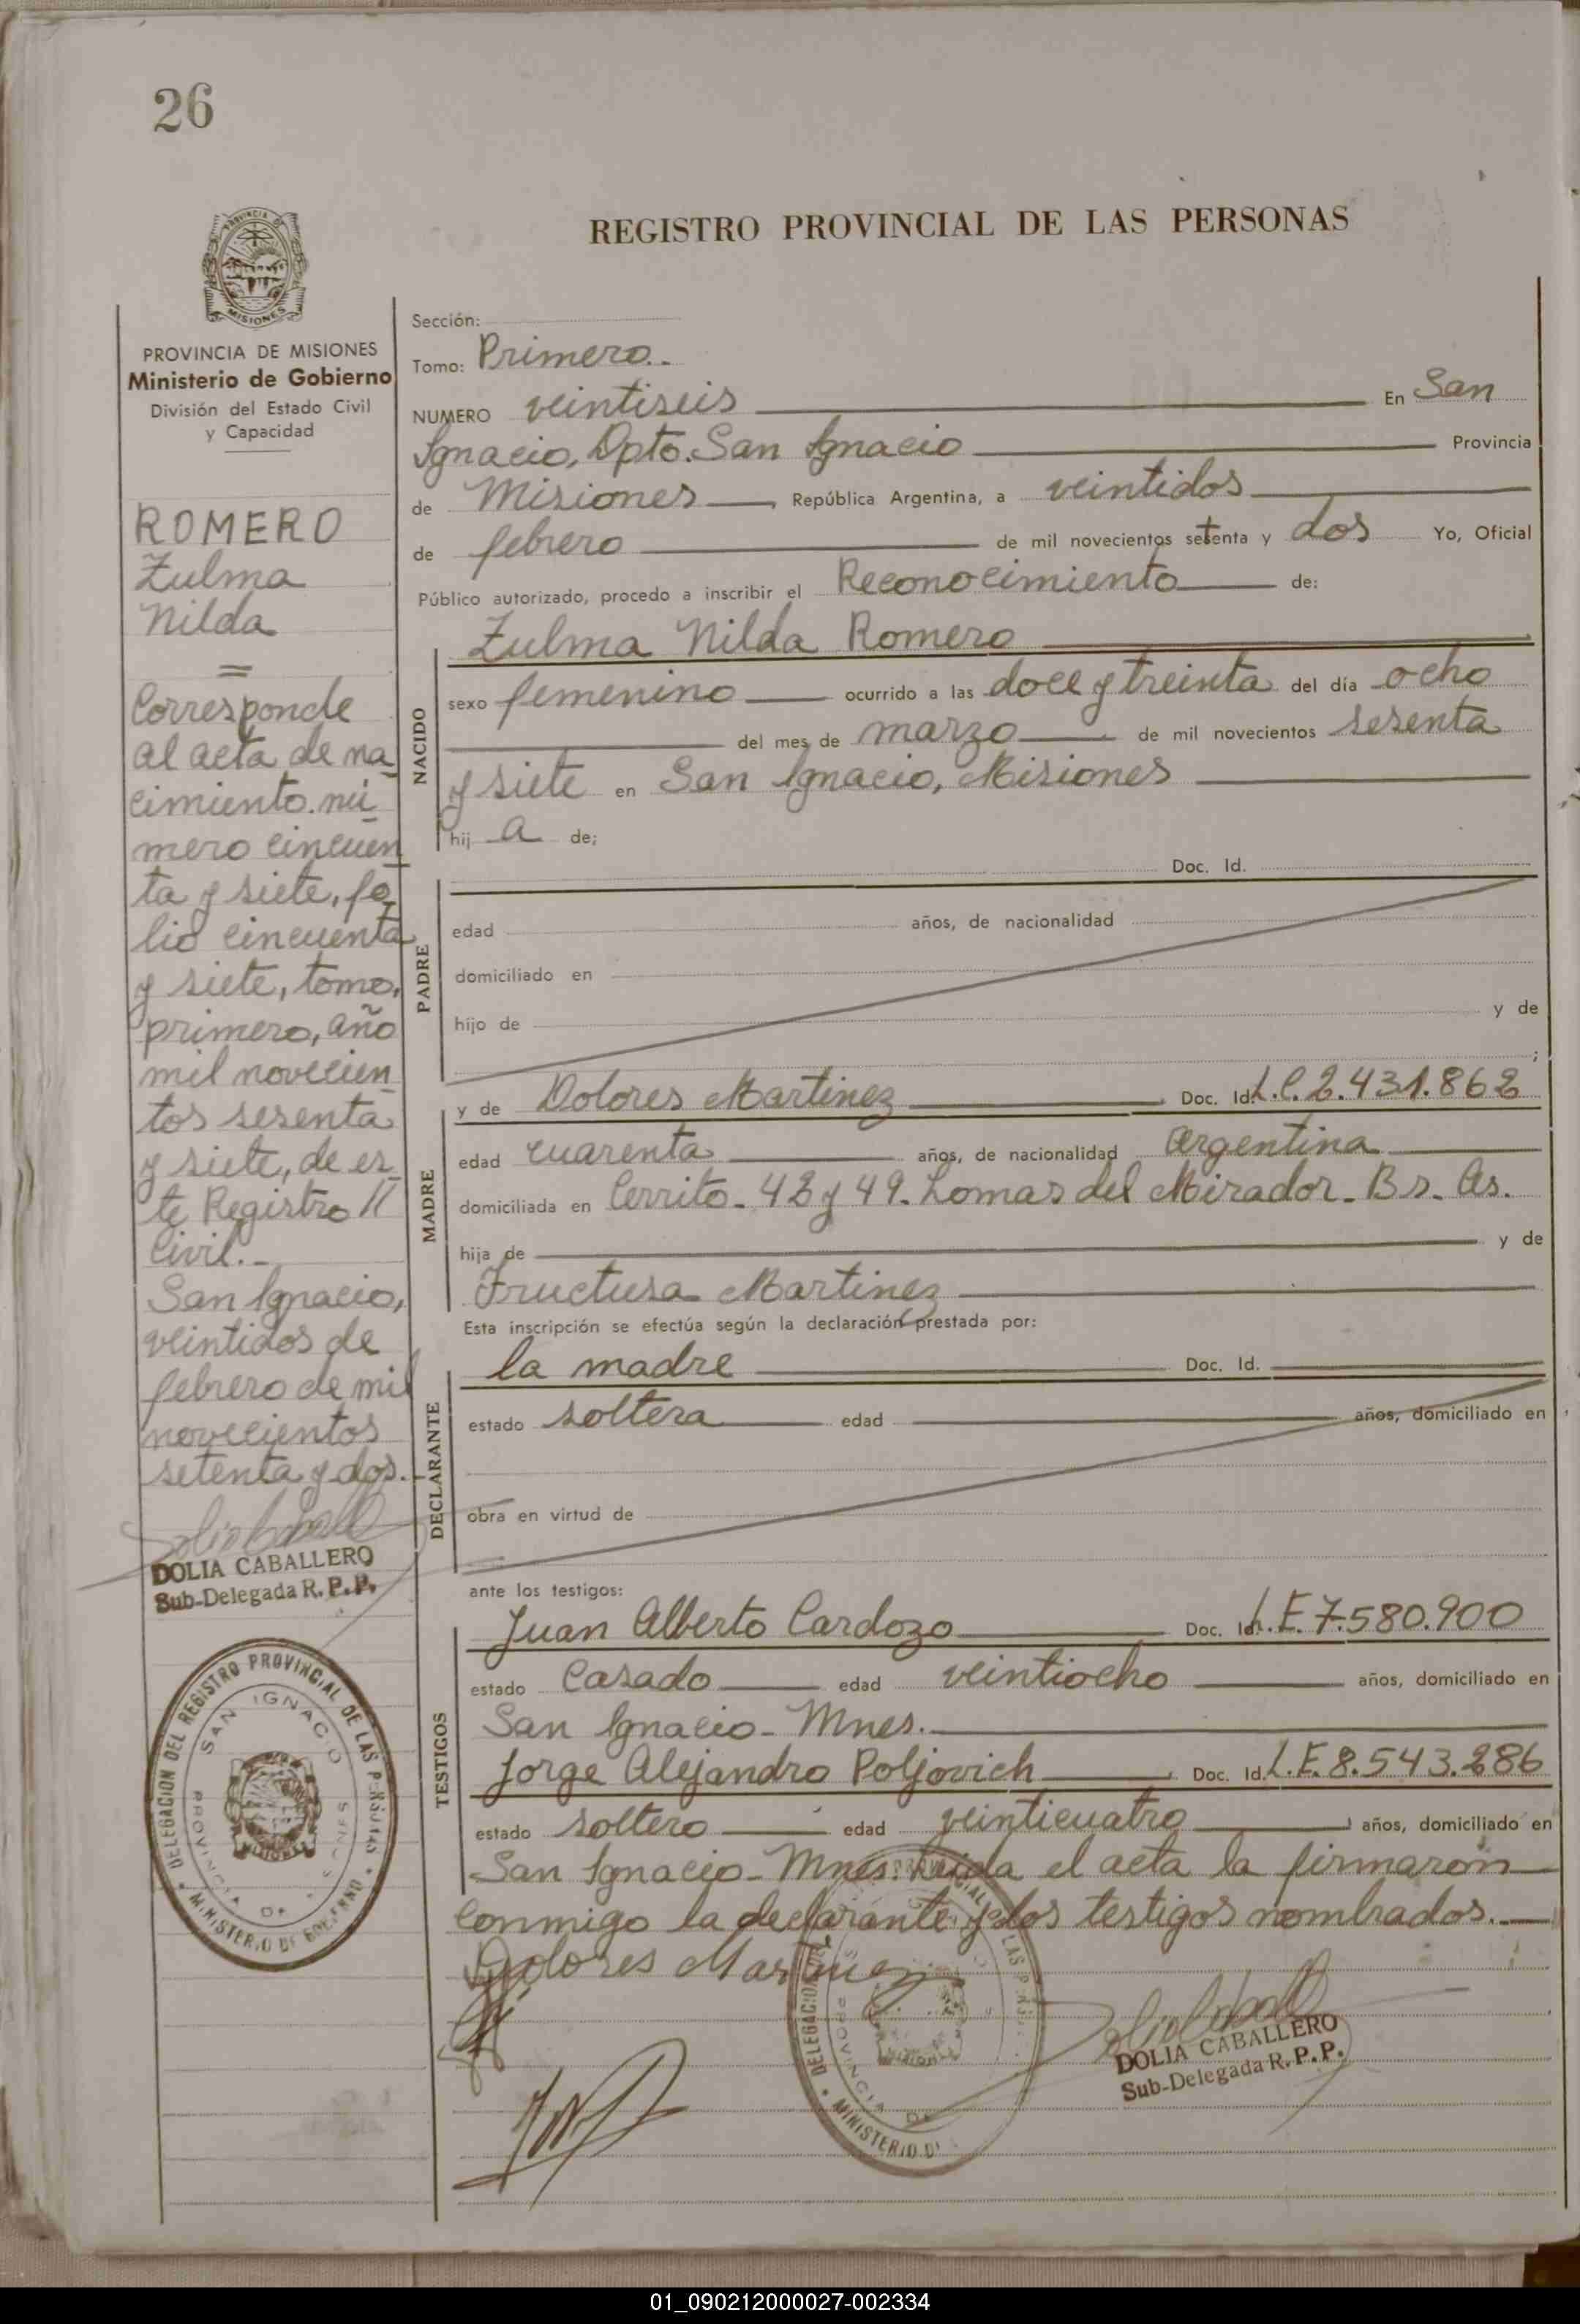 26
PROVINCIA DE
MISIONES
PROVINCIA DE MISIONES
Ministerio de Gobierno
División del Estado Civil
y Capacidad
ROMERO
Zulma
Nilda
=
Corresponde
al acta de na
cimiento nú
mero cincuen
ta y siete, fo
lio cincuenta
y siete, tomo,
primero, año
mil novecien
tos sesenta
y siete, de es
te Registro //
Civil.-
San Ignacio,
veintidos de
febrero de mil
novecientos
setenta y dos.-
DOLIA CABALLERO
Sub-Delegada R. P. P.
DELEGACION DEL REGISTRO PROVINCIAL DE LAS PERSONAS
SAN IGNACIO
PROVINCIA DE MISIONES
MISIONES
MINISTERIO DE GOBIERNO
REGISTRO PROVINCIAL DE LAS PERSONAS
Sección:
Tomo: Primero.-
NUMERO veintiseis En San
Ignacio, Dpto. San Ignacio Provincia
de Misiones, República Argentina, a veintidos
de febrero de mil novecientos setenta y dos Yo, Oficial
Público autorizado, procedo a inscribir el Reconocimiento de:
NACIDO
Zulma Nilda Romero
sexo femenino ocurrido a las doce y treinta del día ocho
del mes de marzo de mil novecientos sesenta
y siete en San Ignacio, Misiones
hij a de;
PADRE
Doc. Id.
edad años, de nacionalidad
domiciliado en
hijo de y de
;
MADRE
y de Dolores Martinez Doc. Id. L.C. 2.431.862
edad cuarenta años, de nacionalidad Argentina
domiciliada en Cerrito - 48 y 49 - Lomas del Mirador - Bs. As.
hija de y de
Fructusa Martinez
Esta inscripción se efectúa según la declaración prestada por:
DECLARANTE
la madre Doc. Id.
estado soltera edad años, domiciliado en
obra en virtud de
ante los testigos:
TESTIGOS
Juan Alberto Cardozo Doc. Id. L.E. 7.580.900
estado Casado edad veintiocho años, domiciliado en
San Ignacio - Mnes.
Jorge Alejandro Poljovich Doc. Id. L.E. 8.543.286
estado soltero edad veinticuatro años, domiciliado en
San Ignacio - Mnes. Leida el acta la firmaron
conmigo la declarante y los testigos nombrados.
Dolores Martinez
DOLIA CABALLERO
Sub-Delegada R. P. P.
01_090212000027-002334